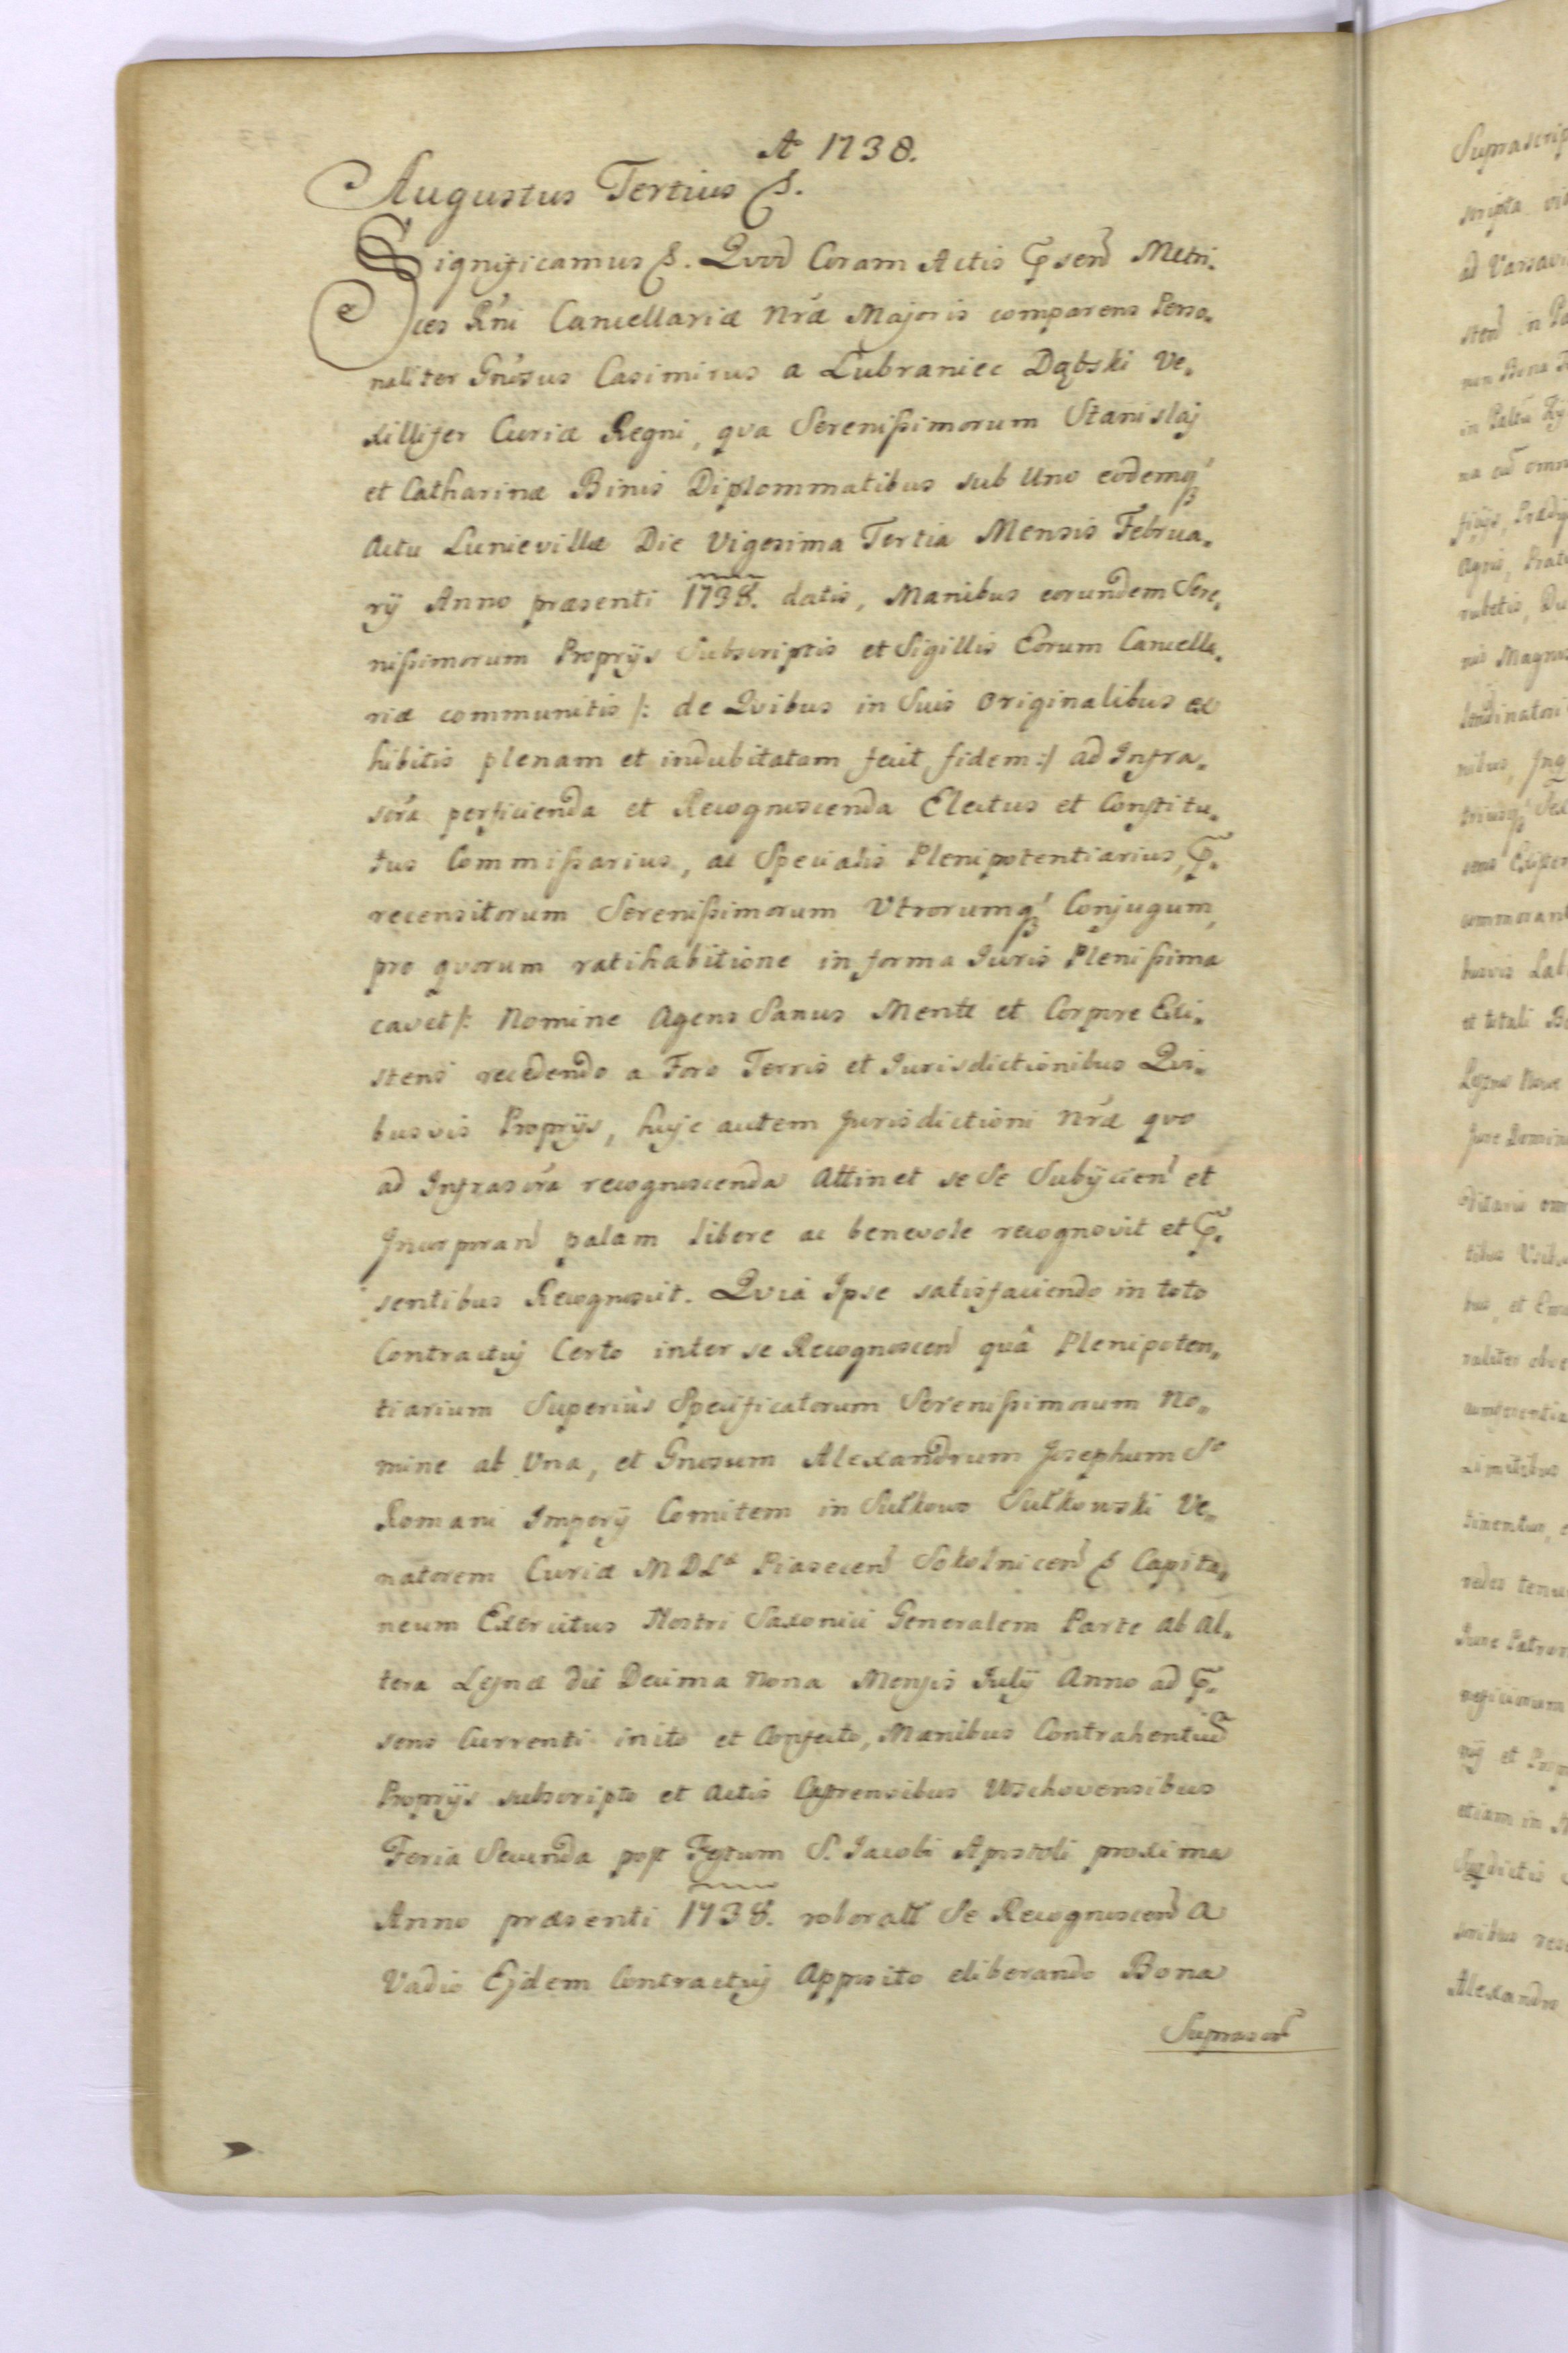 Aº 1738.
Augustus Tertius &.
Significamus &. Qvod Coram Actis Psen Metri.
ces Rni Cancellariæ Nræ Majoris comparens Perso.
naliter Gnosus Casimirus a Lubraniec Dąbski Ve.
xillifer Curiæ Regni, qva Serenißimorum Stanislaj
et Catharinæ Binis Diplommatibus sub Uno eodemq
Actu Lunievillæ Die Vigesima Tertia Mensis Februa.
rÿ Anno præsenti 1738. datis, Manibus eorundem Sere.
nißimorum Proprÿs Subscriptis et Sigillis Eorum Cancella.
riæ communitis /: de Qvibus in Suis Originalibus ex
hibitis plenam et indubitatam fecit fidem :/ ad Infra.
scra perficienda et Recognoscenda Electus et Constitu.
tus Commißarius, ac Specialis Plenipotentiarius, P.
recensitorum Serenißimorum Utrorumq Conjugum,
pro qvorum ratihabitione in forma Iuris Plenißima
cavet /: Nomine Agens Sanus Mente et Corpore Exi.
stens recedendo a Foro Terris et Iurisdictionibus Qvi.
busvis Proprÿs, hujc autem Jurisdictioni Nræ qvo
ad Infrascra recognoscenda Attinet se Se Subÿcien et
Incorporan palam libere ac benevole recognovit et P.
sentibus Recognoscit. Qvia Ipse satisfaciendo in toto
Contractuj Certo inter se Recognoscen quâ Plenipoten.
tiarium Superiùs Specificatorum Serenißimorum No.
mine ab Una, et Gnosum Alexandrum Josephum Sº
Romani Imperÿ Comitem in Sułkowo Sułkowski Ve.
natorem Curiæ M D L Piasecen Sokolnicen & Capita.
neum Exercitus Nostri Saxonici Generalem Parte ab Al.
tera Lesnæ die Decima Nona Mensis Julÿ Anno ad P.
sens Currenti inito et Confecto, Manibus Contrahentiu
Proprÿs subscripto et Actis Castrensibus Wschovensibus
Feria Secunda post Festum S. Iacobi Apostoli proxima
Anno præsenti 1738. roboratt Se Recognoscen a
Vadio Ejdem Contractuj Apposito eliberando Bona
Suprascr